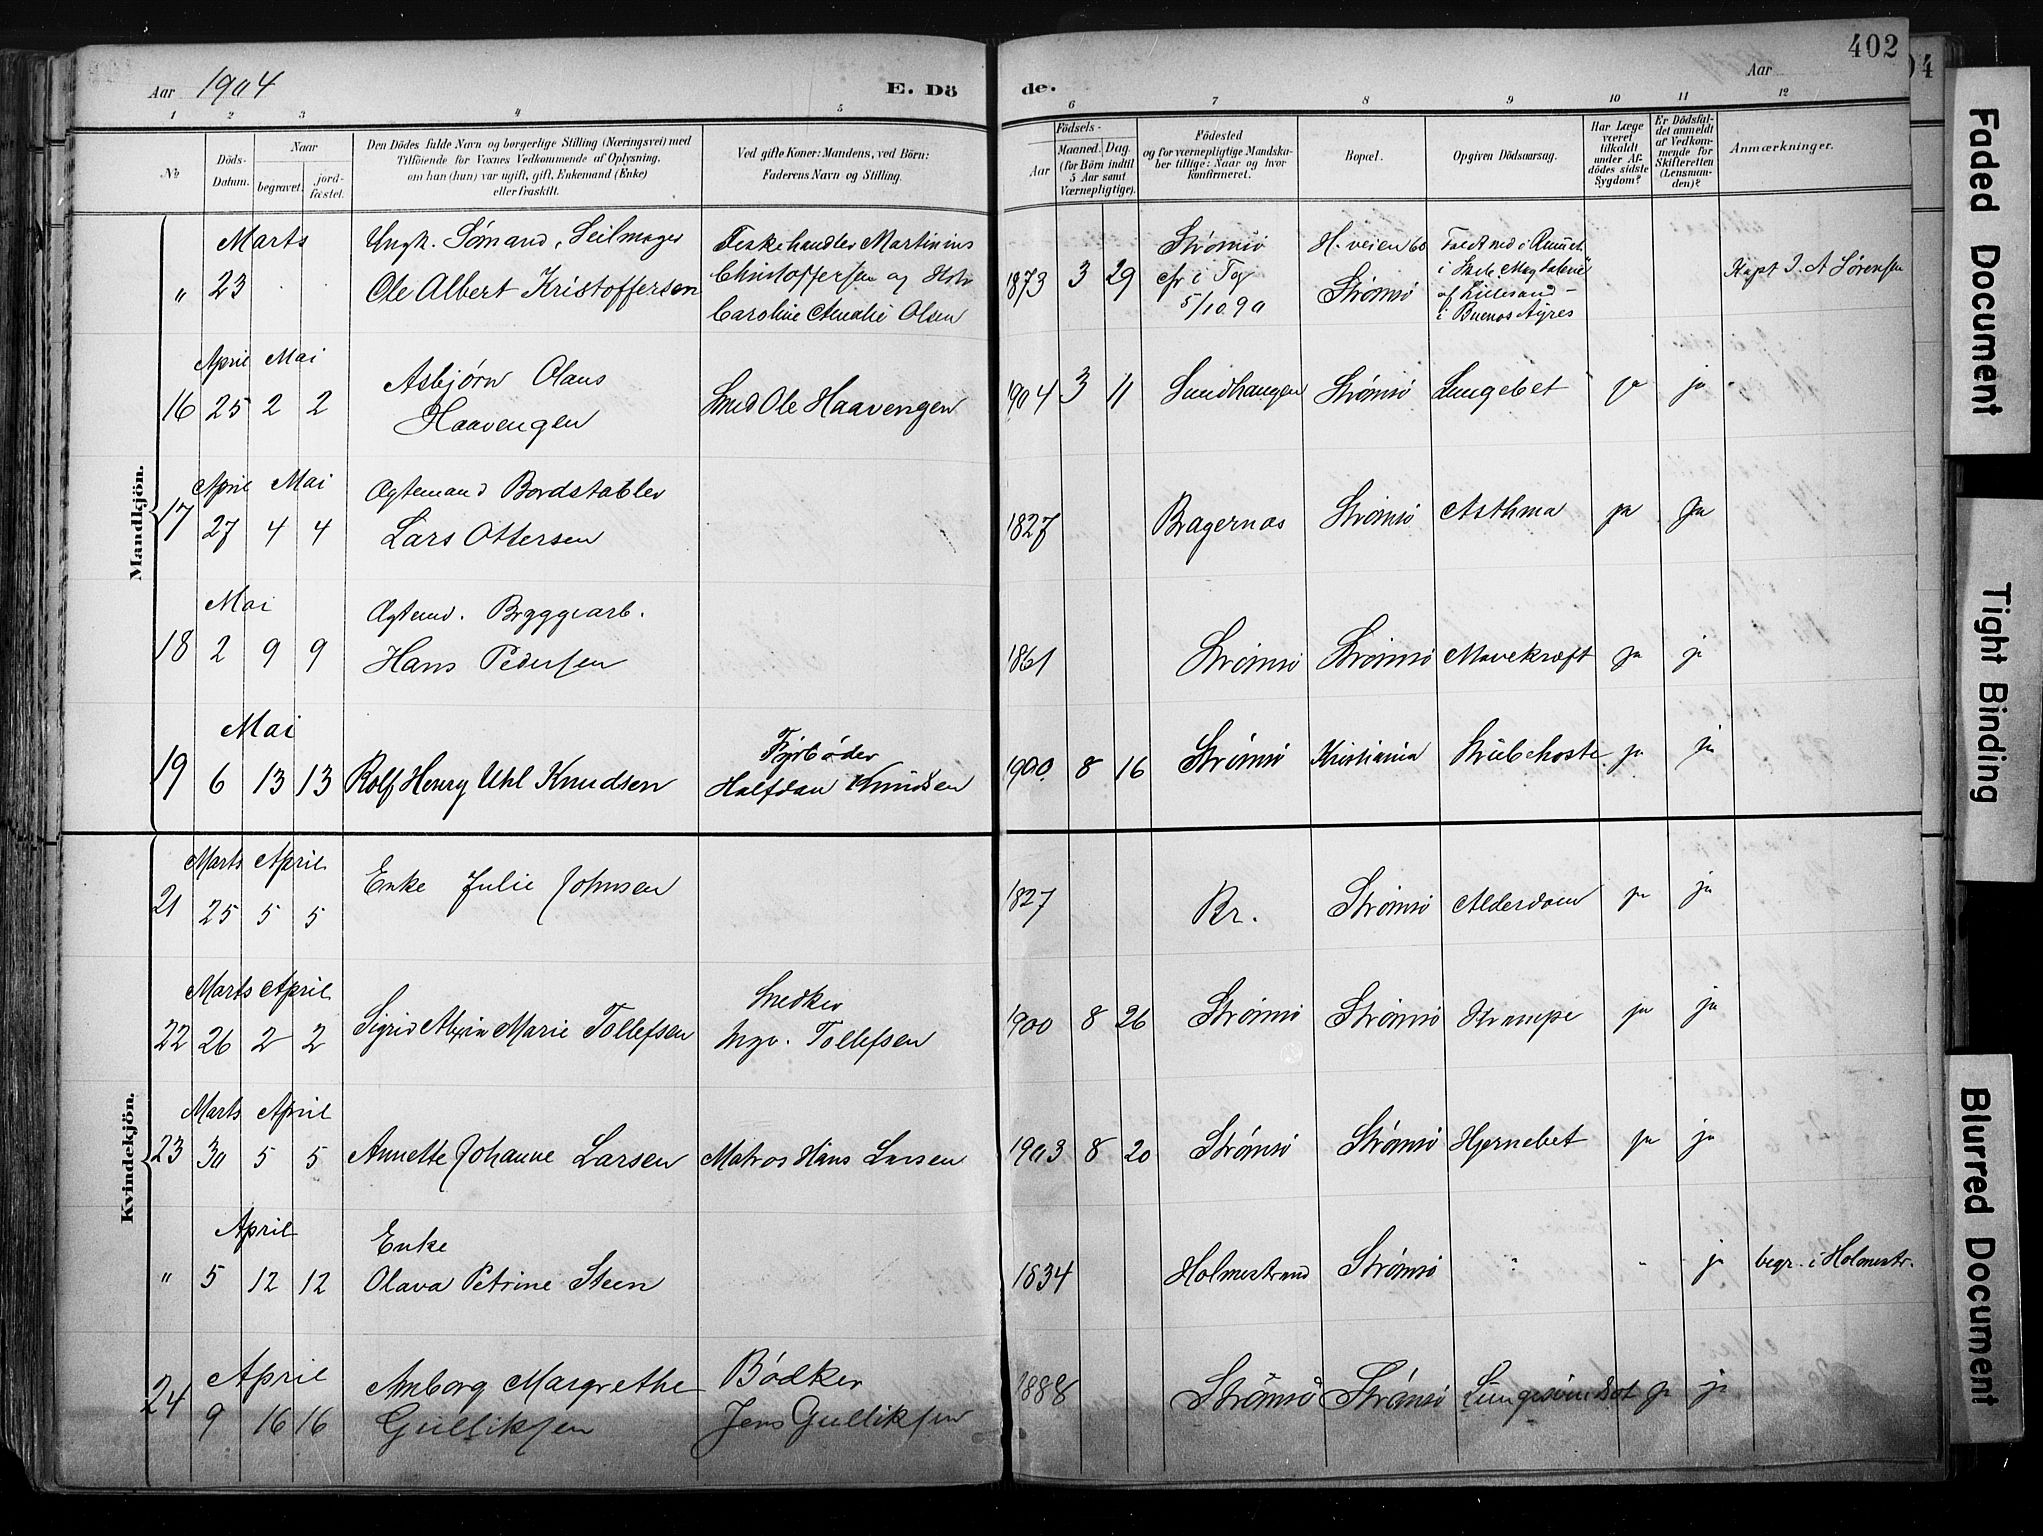 402
Aar 1904
E. Dö
de.
Aar
1 2 3 4 5 6 7 8 9 10 11 12
No
Döds-Datum.
Naar
begravet. jord-fæstet.
Den Dödes fulde Navn og borgerlige Stilling (Næringsvei) med
Tilföiende for Voxnes Vedkommende af Oplysning,
om han (hun) var ugift, gift, Enkemand (Enke)
eller fraskilt.
Ved gifte Koner: Mandens, ved Börn:
Faderens Navn og Stilling.
Födsels-
Aar
Maaned. Dag.
(for Börn indtil
5 Aar samt
Værnepligtige).
Födested
og for værnepligtige Mandska-
ber tillige: Naar og hvor
konfirmeret.
Bopæl.
Opgiven Dödsaarsag.
Har Læge
været
tilkaldt
under Af-
dödes sidste
Sygdom?
Er Dödsfal-
det anmeldt
af Vedkom-
mende for
Skifteretten
(Lensman-
den)?
Anmærkninger.
Mandkjön.
Marts Ungk. Sømand, Seilmager Fiskehandler Martinius Strømsø H. veien 60 Faldt ned i Rummet
" 23 Ole Albert Kristoffersen Christoffersen og Hstr 1873 3 29 cfr i Tog Strømsø i Skib "Magdalene" Kapt J. A Sørensen
Caroline Amalie Olsen 5/10 90 af Lillesand -
i Buenos Ayres
April Mai Asbjørn Olaus
16 25 2 2 Haavengen Smed Ole Haavengen 1904 3 11 Sundhaugen Strømsø Lungebet ja ja
April Mai Ægtemand Bordstabler
17 27 4 4 Lars Ottersen 1827 Bragernæs Strømsø Asthma ja ja
Mai Ægtemd. Bryggearb.
18 2 9 9 Hans Pedersen 1861 Strømsø Strømsø Mavekræft ja ja
Mai Fyrbøder
19 6 13 13 Rolf Henry Uhl Knudsen Halfdan Knudsen 1900 8 16 Strømsø Kristiania Strubehoste ja ja
Kvindekjön.
Marts April Enke Julie Johnsen
21 25 5 5 1827 Br. Strømsø Alderdom ja ja
Marts April Snedker
22 26 2 2 Sigrid Marie Tollefsen Ingv. Tollefsen 1900 8 26 Strømsø Strømsø Krampe ja ja
Marts April
23 30 5 5 Annette Johanne Larsen Matros Hans Larsen 1903 8 20 Strømsø Strømsø Hjernebet ja ja
April Enke
" 5 12 12 Olava Petrine Steen 1834 Holmestrand Strømsø " " ja begr. i Holmestr.
April Anborg Margrethe Bødker
24 9 16 16 Gulliksen Jens Gulliksen 1888 Strømsø Strømsø Lungesvindsot ja ja
Faded Document
Tight Binding
Blurred Document